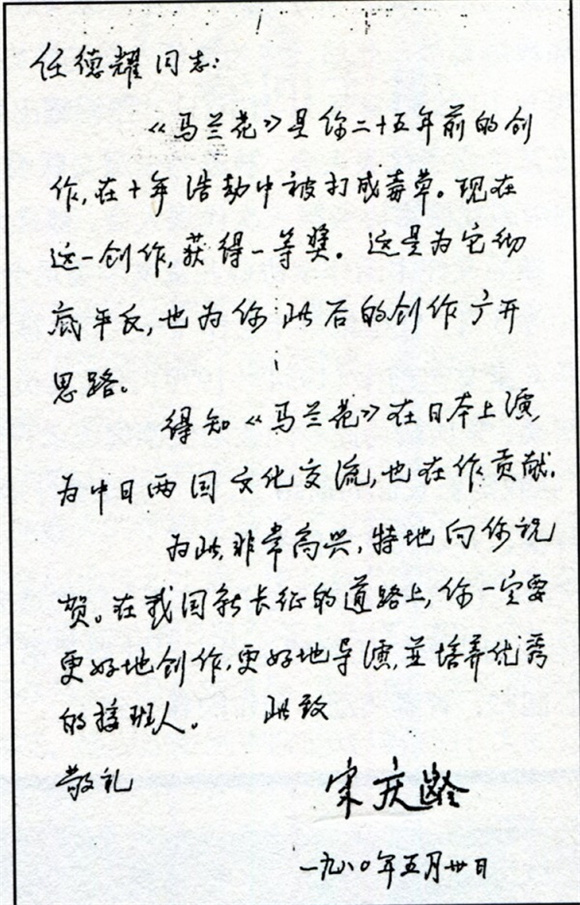 任德耀同志:
《马兰花》是你二十五年前的创
作,在十年浩劫中被打成毒草。现在
这一创作,获得一等奖。这是为它彻
底平反,也为你此后的创作广开
思路。
得知《马兰花》在日本上演
为中日两国文化交流,也在作贡献.
为此,非常高兴,特地向你祝
贺。在我国新长征的道路上,你一定要
更好地创作,更好地导演,並培养优秀
的接班人。 此致
敬礼
宋庆龄
一九八〇年五月卅日